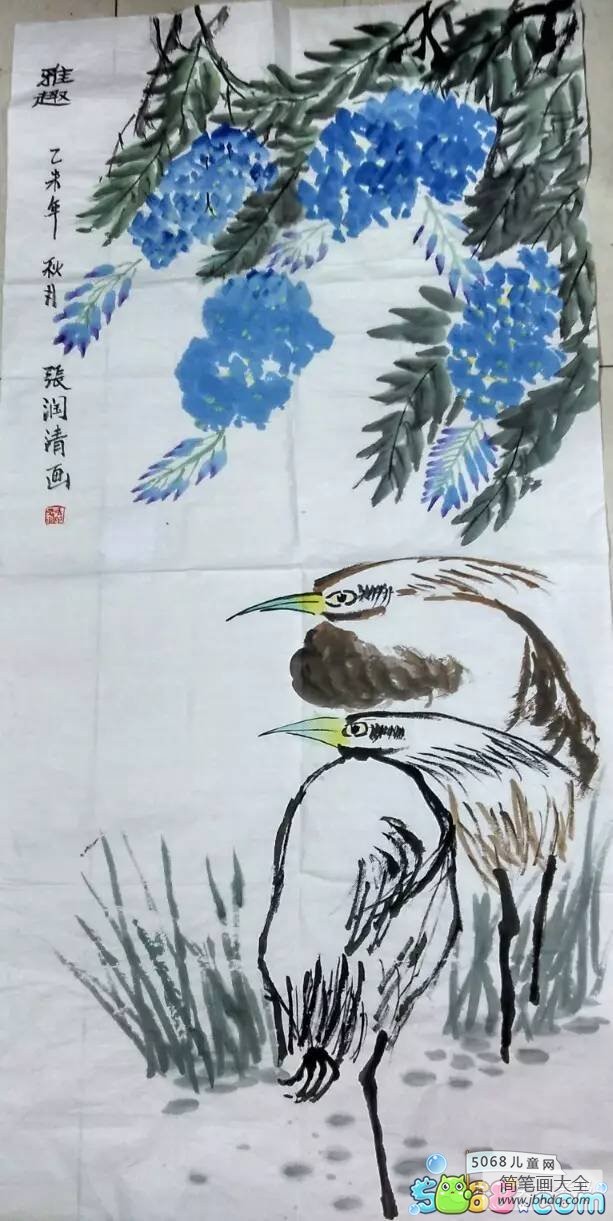 雅趣
乙未年 秋月 張润清画
5068儿童网
简笔画大全
www.jbhdq.com
5068.com